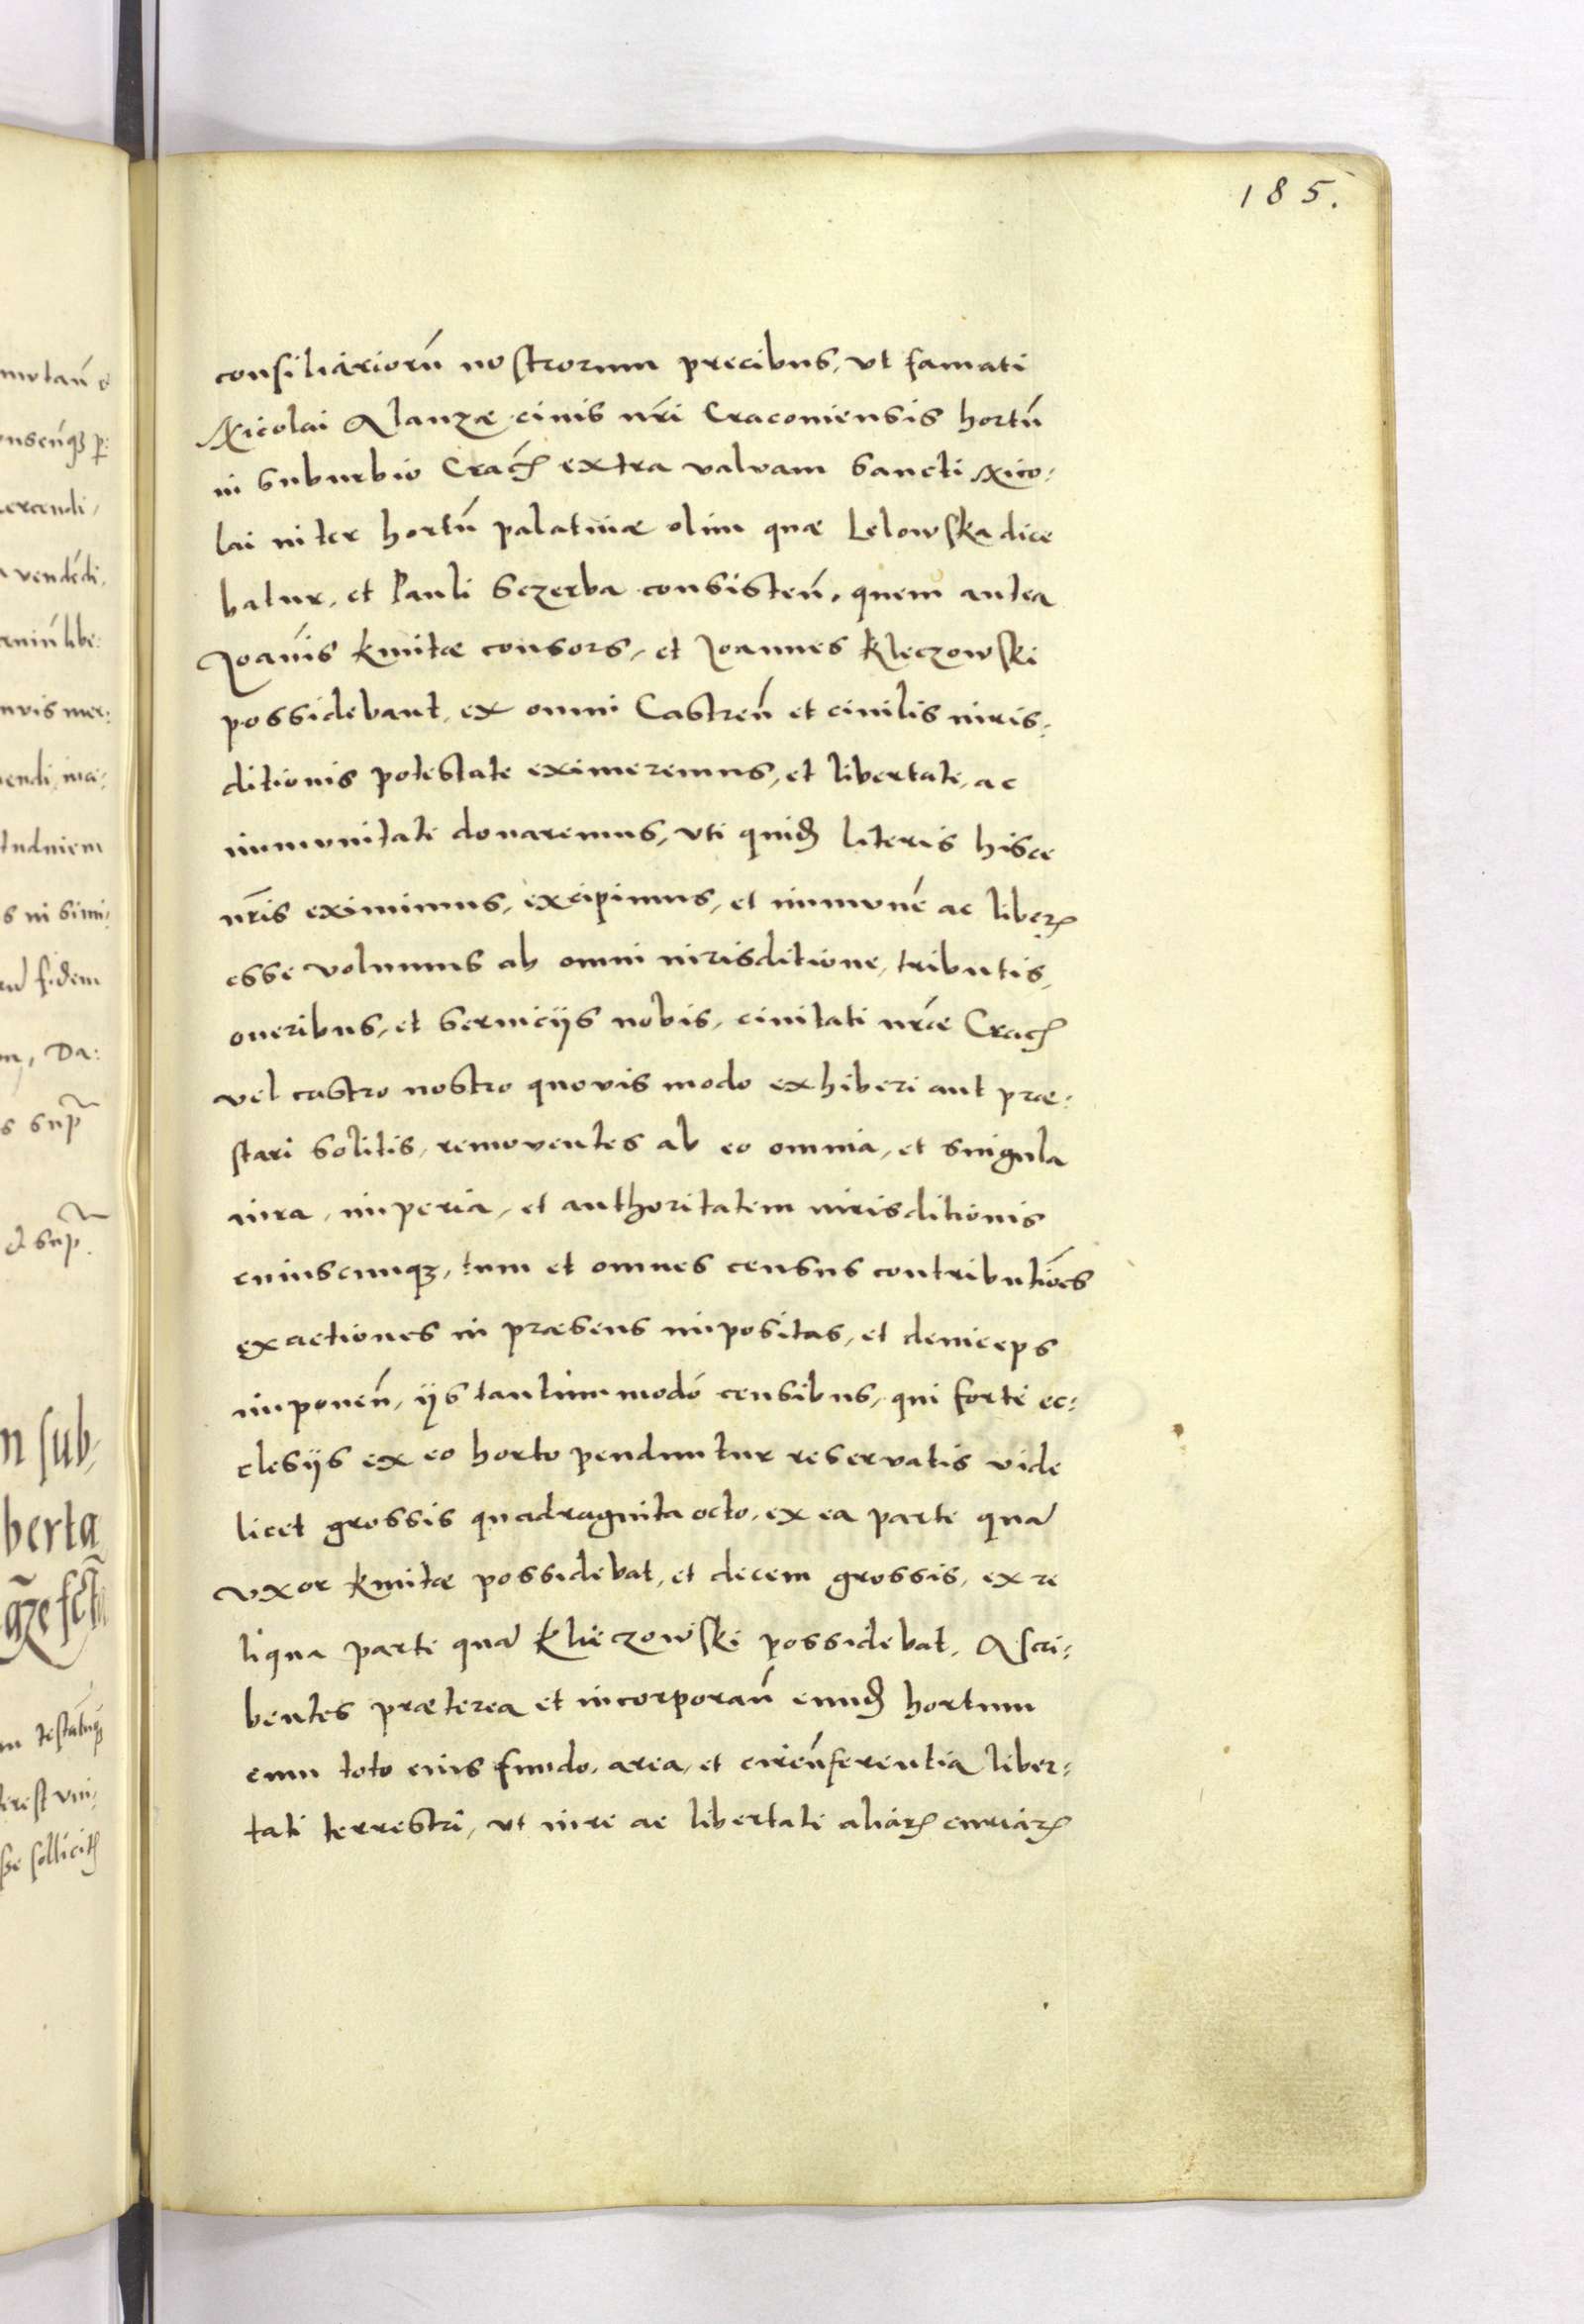 185.
consiliariorū nostrorum precibus, vt famati
Nicolai Alanzæ civis nr̄i Cracoviensis hortū
in suburbio Crac̄ extra valvam Sancti Nico:
lai inter hortū palatinæ olim quæ Lelowska dice
batur, et Pauli Sczerba consisteñ, quem antea
Joānis Kmitæ consors, et Joannes Kleczowski
possidebant, ex omni Castreñ et civilis iuris:
ditionis potestate eximeremus, et libertate, ac
immunitate donaremus, vti quidē literis hisce
nr̄is eximimus, excipimus, et immunē ac liberꝝ
esse volumus ab omni iurisditione, tributis,
oneribus, et serviciis nobis, civitati nr̄æ Crac̄
vel castro nostro quovis modo exhiberi aut præ:
stari solitis, removentes ab eo omnia, et singula
iura, imperia, et authoritatem iurisditionis
cuiuscunqꝫ, tum et omnes census contributiōes
exactiones in præsens impositas, et deinceps
imponeñ, ijs tantummodó censibus, qui forte ec:
clesijs ex eo horto penduntur reservatis vide
licet grossis quadraginta octo, ex ea parte quā
vxor Kmitæ possidebat, et decem grossis, ex re
liqua parte quā Klieczowski possidebat, Ascri:
bentes præterea et incorporañ eundē hortum
cum toto eius fundo, area, et circūferentia liber:
tati terrestri, vt iure ac libertate aliarꝝ curiarꝝ